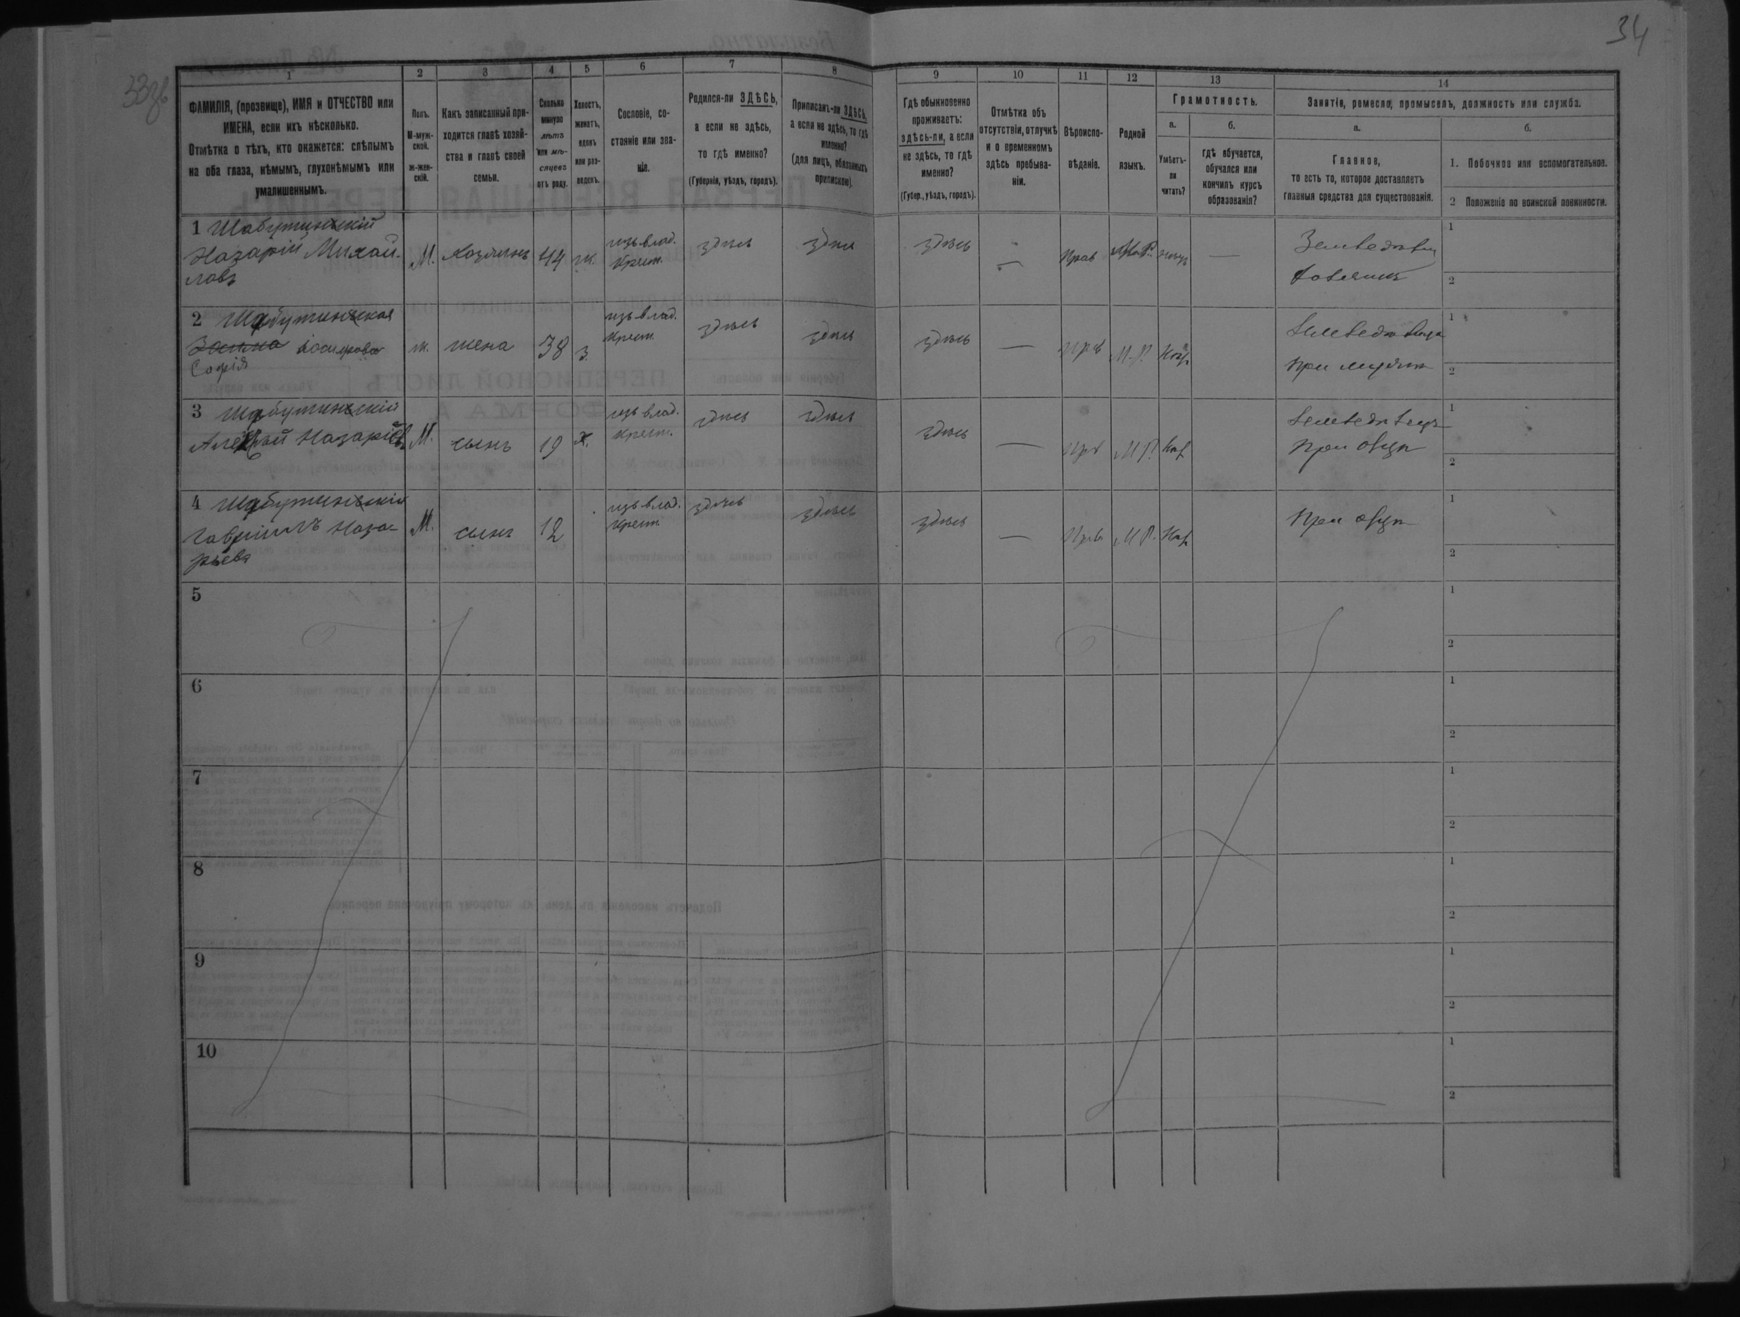 34
33об
1
2
3
4
5
6
7
8
9
10
11
12
13
14
ФАМИЛІЯ, (прозвище), ИМЯ и ОТЧЕСТВО или
ИМЕНА, если ихъ нѣсколько.
Отмѣтка о тѣхъ, кто окажется: слѣпымъ
на оба глаза, нѣмымъ, глухонѣмымъ или
умалишеннымъ.
Полъ.
М-муж-
ской.
ж-жен-
скій.
Какъ записанный при-
ходится главѣ хозяй-
ства и главѣ своей
семьи.
Сколько
минуло
лѣтъ
или мѣ-
сяцевъ
отъ роду.
Холостъ,
женатъ,
вдовъ
или раз-
веденъ.
Сословіе, со-
стояніе или зва-
ніе.
Родился-ли ЗДѢСЬ,
а если не здѣсь,
то гдѣ именно?
(Губернія, уѣздъ, городъ).
Приписанъ-ли ЗДѢСЬ,
а если не здѣсь, то гдѣ
именно?
(для лицъ, обязанныхъ
припискою).
Гдѣ обыкновенно
проживаетъ:
здѣсь-ли, а если
не здѣсь, то гдѣ
именно?
(Губер., уѣздъ, городъ).
Отмѣтка объ
отсутствіи, отлучкѣ
и о временномъ
здѣсь пребыва-
ніи.
Вѣроиспо-
вѣданіе.
Родной
языкъ.
Грамотность.
а.
Умѣетъ-
ли
читать?
б.
гдѣ обучается,
обучался или
кончилъ курсъ
образованія?
Занятіе, ремесло, промыселъ, должность или служба.
а.
Главное,
то есть то, которое доставляетъ
главныя средства для существованія.
б.
1. Побочное или вспомогательное.
2 Положеніе по воинской повинности.
1 Шабутинскій
Назарій Михай-
ловъ
М.
хозяинъ
44
ж.
изъ влад.
Крест.
здѣсь
здѣсь
здѣсь
—
Прав
М.Р.
—
Земледѣлец
хозяинъ
1
2
2 Шабутинская
София
ж.
жена
38
з.
изъ влад.
Крест
здѣсь
здѣсь
здѣсь
—
Прв
М.Р.
Негр
Земледѣлица
При мужѣ
1
2
3 Шабутинскій
Алексѣй Назаріев
М.
сынъ
19
х.
изъ влад.
Крест.
здѣсь
здѣсь
здѣсь
—
Прв
М.Р.
Негр
Земледѣлец
При отцѣ
1
2
4 Шабутинскій
Гавріилъ Наза-
рьевъ
М.
сынъ
12
изъ влад.
Крест
здѣсь
здѣсь
здѣсь
—
Прв
М.Р.
Негр
При отцѣ
1
2
5
1
2
6
1
2
7
1
2
8
1
2
9
1
2
10
1
2